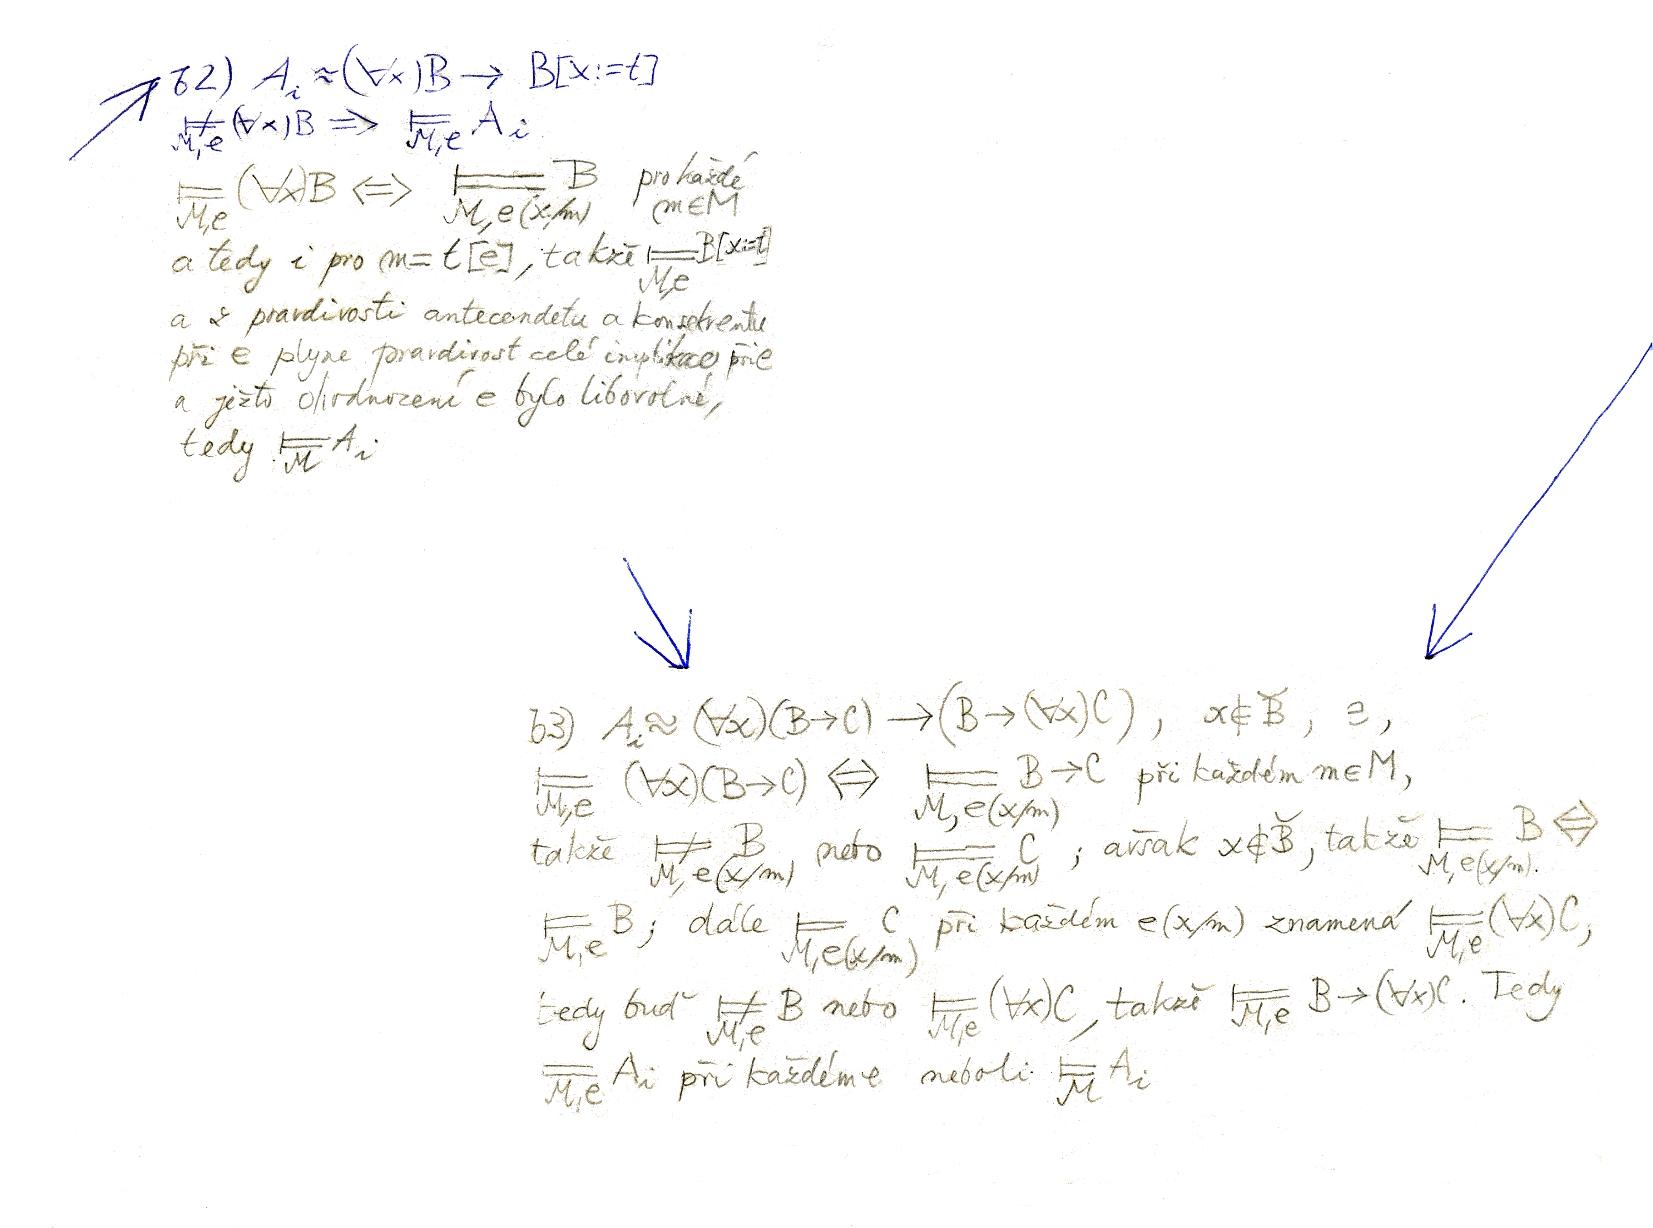 b2) A_i ≈ (∀x)B → B[x:=t]
⊭_{M,e} (∀x)B ⇒ ⊨_{M,e} A_i
⊨_{M,e} (∀x)B ⇔ ⊨_{M,e(x/m)} B pro každé m∈M
a tedy i pro m = t[e], takže ⊨_{M,e} B[x:=t]
a z pravdivosti antecendetu a konsekventu
při e plyne pravdivost celé implikace při e
a ježto ohodnocení e bylo libovolné,
tedy ⊨_M A_i
b3) A_i ≈ (∀x)(B→C) → (B→(∀x)C), x∉B̌, e,
⊨_{M,e} (∀x)(B→C) ⇔ ⊨_{M,e(x/m)} B→C při každém m∈M,
takže ⊭_{M,e(x/m)} B nebo ⊨_{M,e(x/m)} C; avšak x∉B̌, takže ⊨_{M,e(x/m)} B ⇔
⊨_{M,e} B; dále ⊨_{M,e(x/m)} C při každém e(x/m) znamená ⊨_{M,e} (∀x)C,
tedy buď ⊭_{M,e} B nebo ⊨_{M,e} (∀x)C, takže ⊨_{M,e} B→(∀x)C. Tedy
⊨_{M,e} A_i při každém e neboli ⊨_M A_i